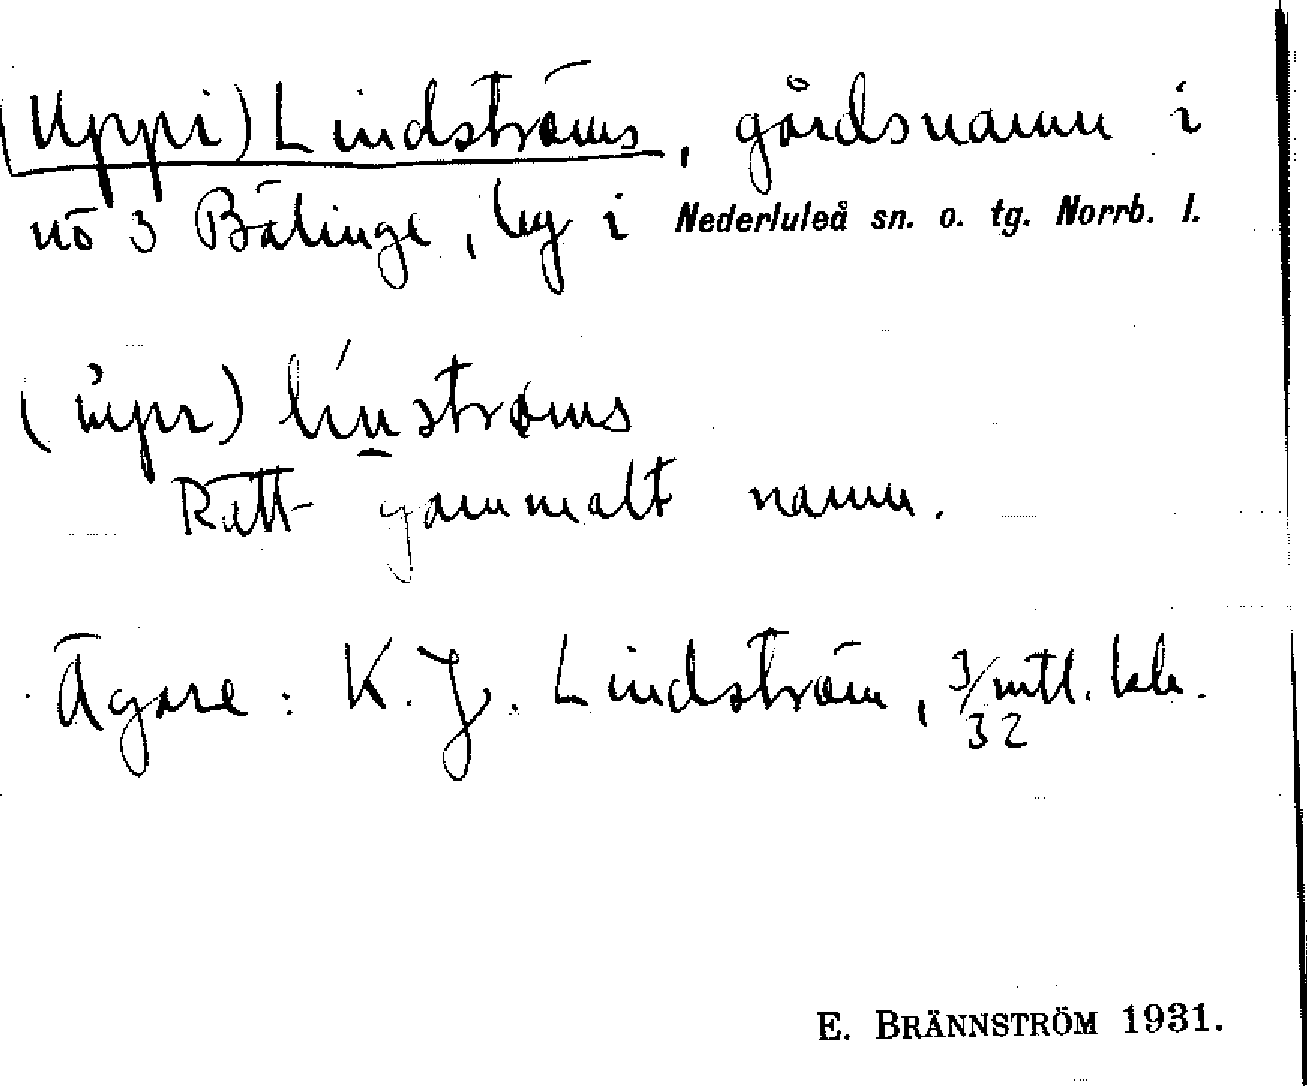 (Uppi) Lindströms, gårdsnamn i
nō 3 Bälinge, by i Nederluleå sn. o. tg. Norrb. l.
linstrøms
Rätt gammalt namn.
Ägare: K. J. Lindström, 3/32 mtl. kle.
E. BRÄNNSTRÖM 1931.